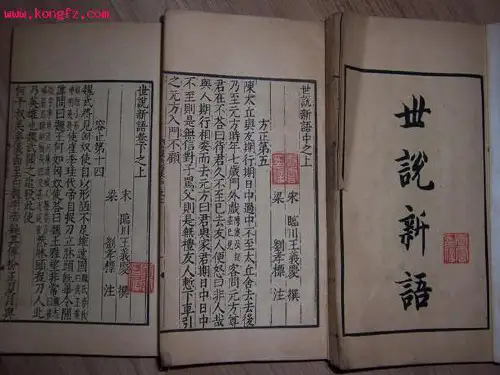 www.kongfz.com
世說新語
世說新語中之上
方正第五
宋 臨川王義慶 撰
梁 劉孝標 注
陳太丘與友期行期日中過中不至太丘舍去去後
乃至元方時年七歲門外戲客問元方尊
君在不荅曰待君久不至已去友人便怒曰非人哉
與人期行相委而去元方曰君與家君期日中日中
不至則是無信對子罵父則是無禮友人慙下車引
之元方入門不顧
世說新語卷下之上
容止第十四
宋 臨川王義慶 撰
梁 劉孝標 注
魏武將見匈奴使自以形陋不足雄遠國
使崔季珪代帝自捉刀立牀頭既畢令間
諜問曰魏王何如匈奴使荅曰魏王雅望非常
然牀頭捉刀人此
乃英雄也魏武聞之追殺此使
何平叔美姿儀面至白魏明帝疑其傅粉正夏月與